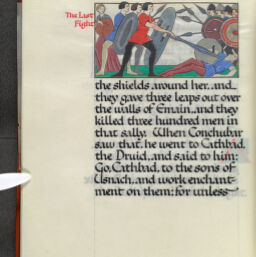 The Last
Fight
the shields around her, and
they gave three leaps out over
the walls of Emain, and they
killed three hundred men in
that sally. When Conchubar
saw that, he went to Cathbad,
the Druid, and said to him:
Go, Cathbad, to the sons of
Usnach, and work enchant-
ment on them: for unless